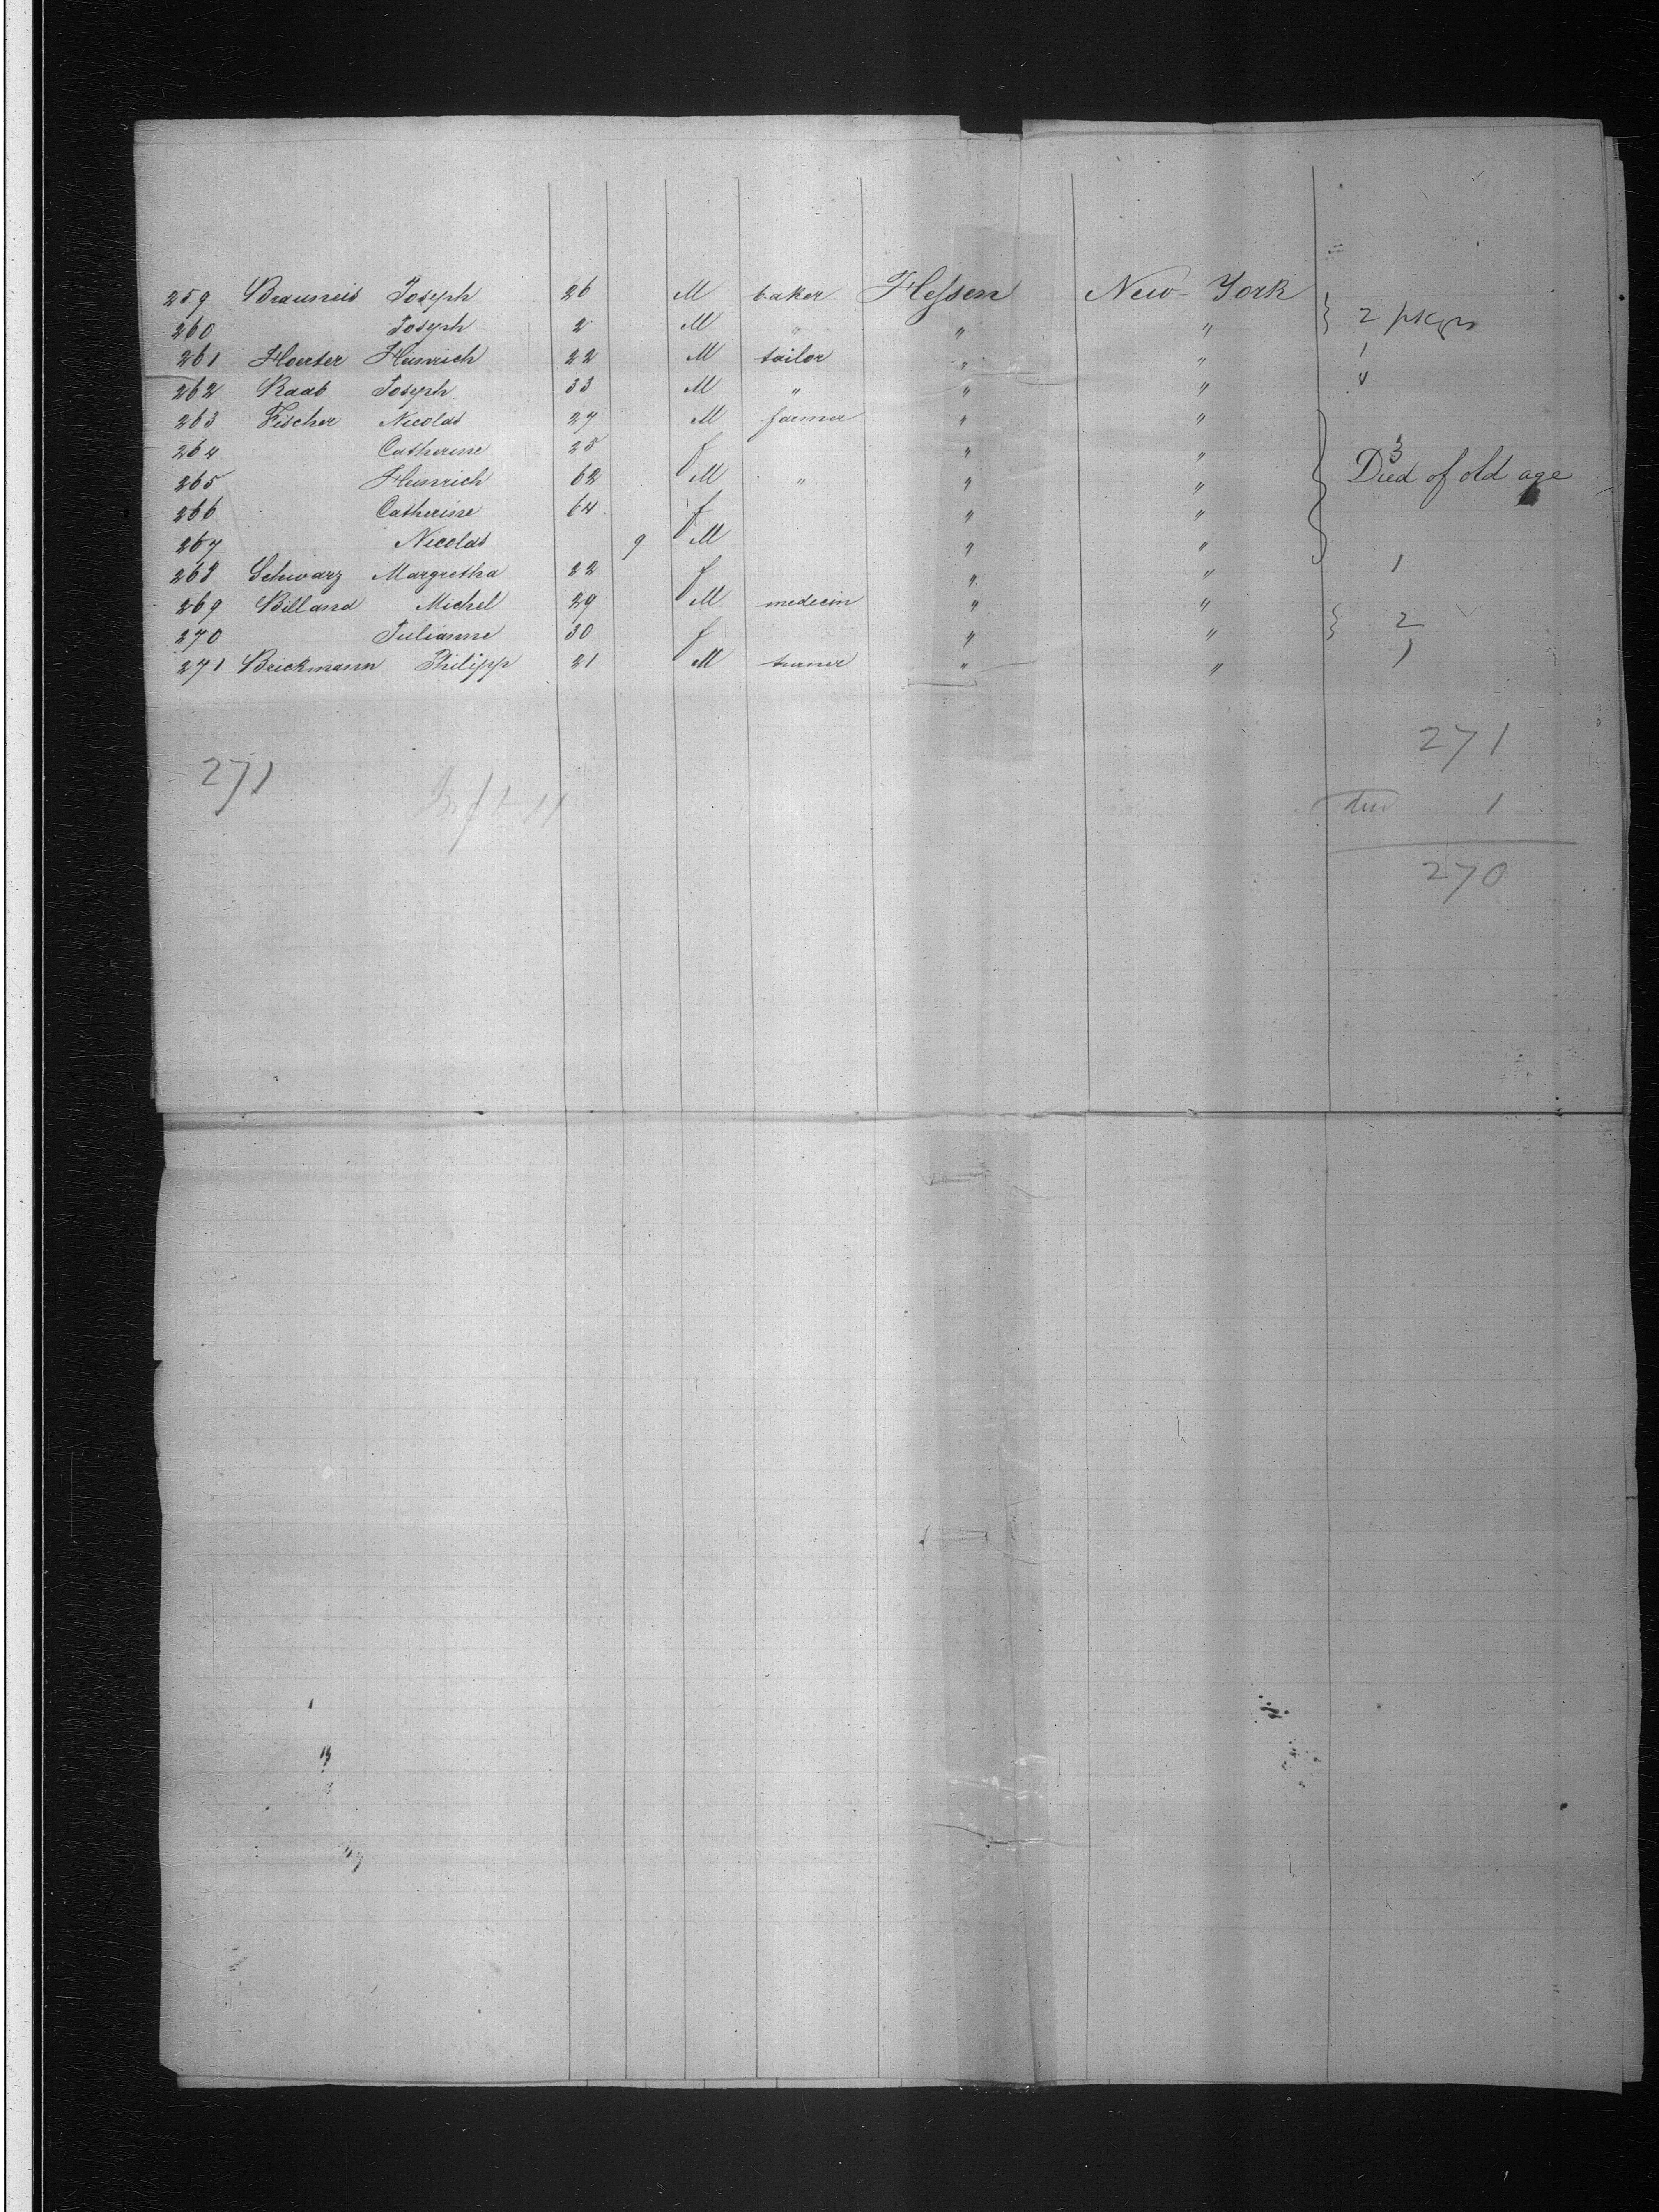 259 Brauneis Joseph 26 M baker Hessen New-York 2 pkgs
260 Joseph 2 M " " "
261 Hoerter Heinrich 22 M tailor " " 1
262 Raab Joseph 33 M " " "
263 Fischer Nicolas 27 M farmer " "
264 Catherine 25 f " " 3
265 Heinrich 62 M " " " Died of old age
266 Catherine 64 f " "
267 Nicolas 9 M " "
268 Schwarz Margretha 22 f " " 1
269 Billand Michel 29 M medecin " " 2
270 Julianne 30 f " "
271 Brickmann Philipp 21 M turner " " 1
271
271
1
270